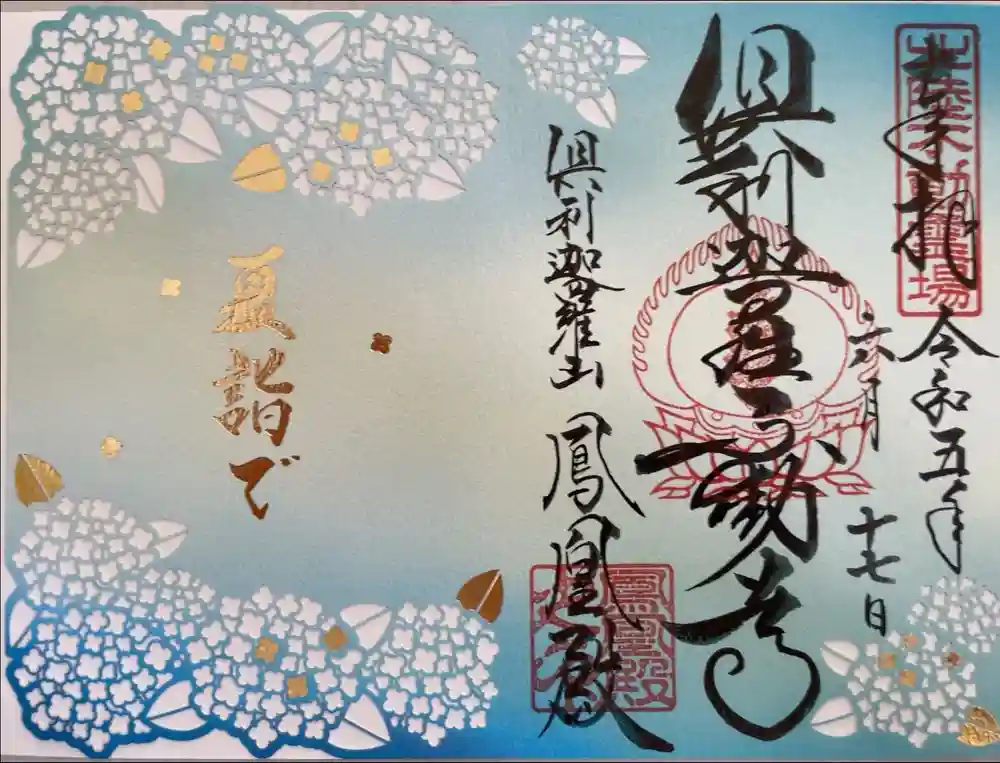 奉拝
北陸不動霊場
令和五年
六月十七日
倶利迦羅不動寺
倶利迦羅山 鳳凰殿
鳳凰殿
夏詣で